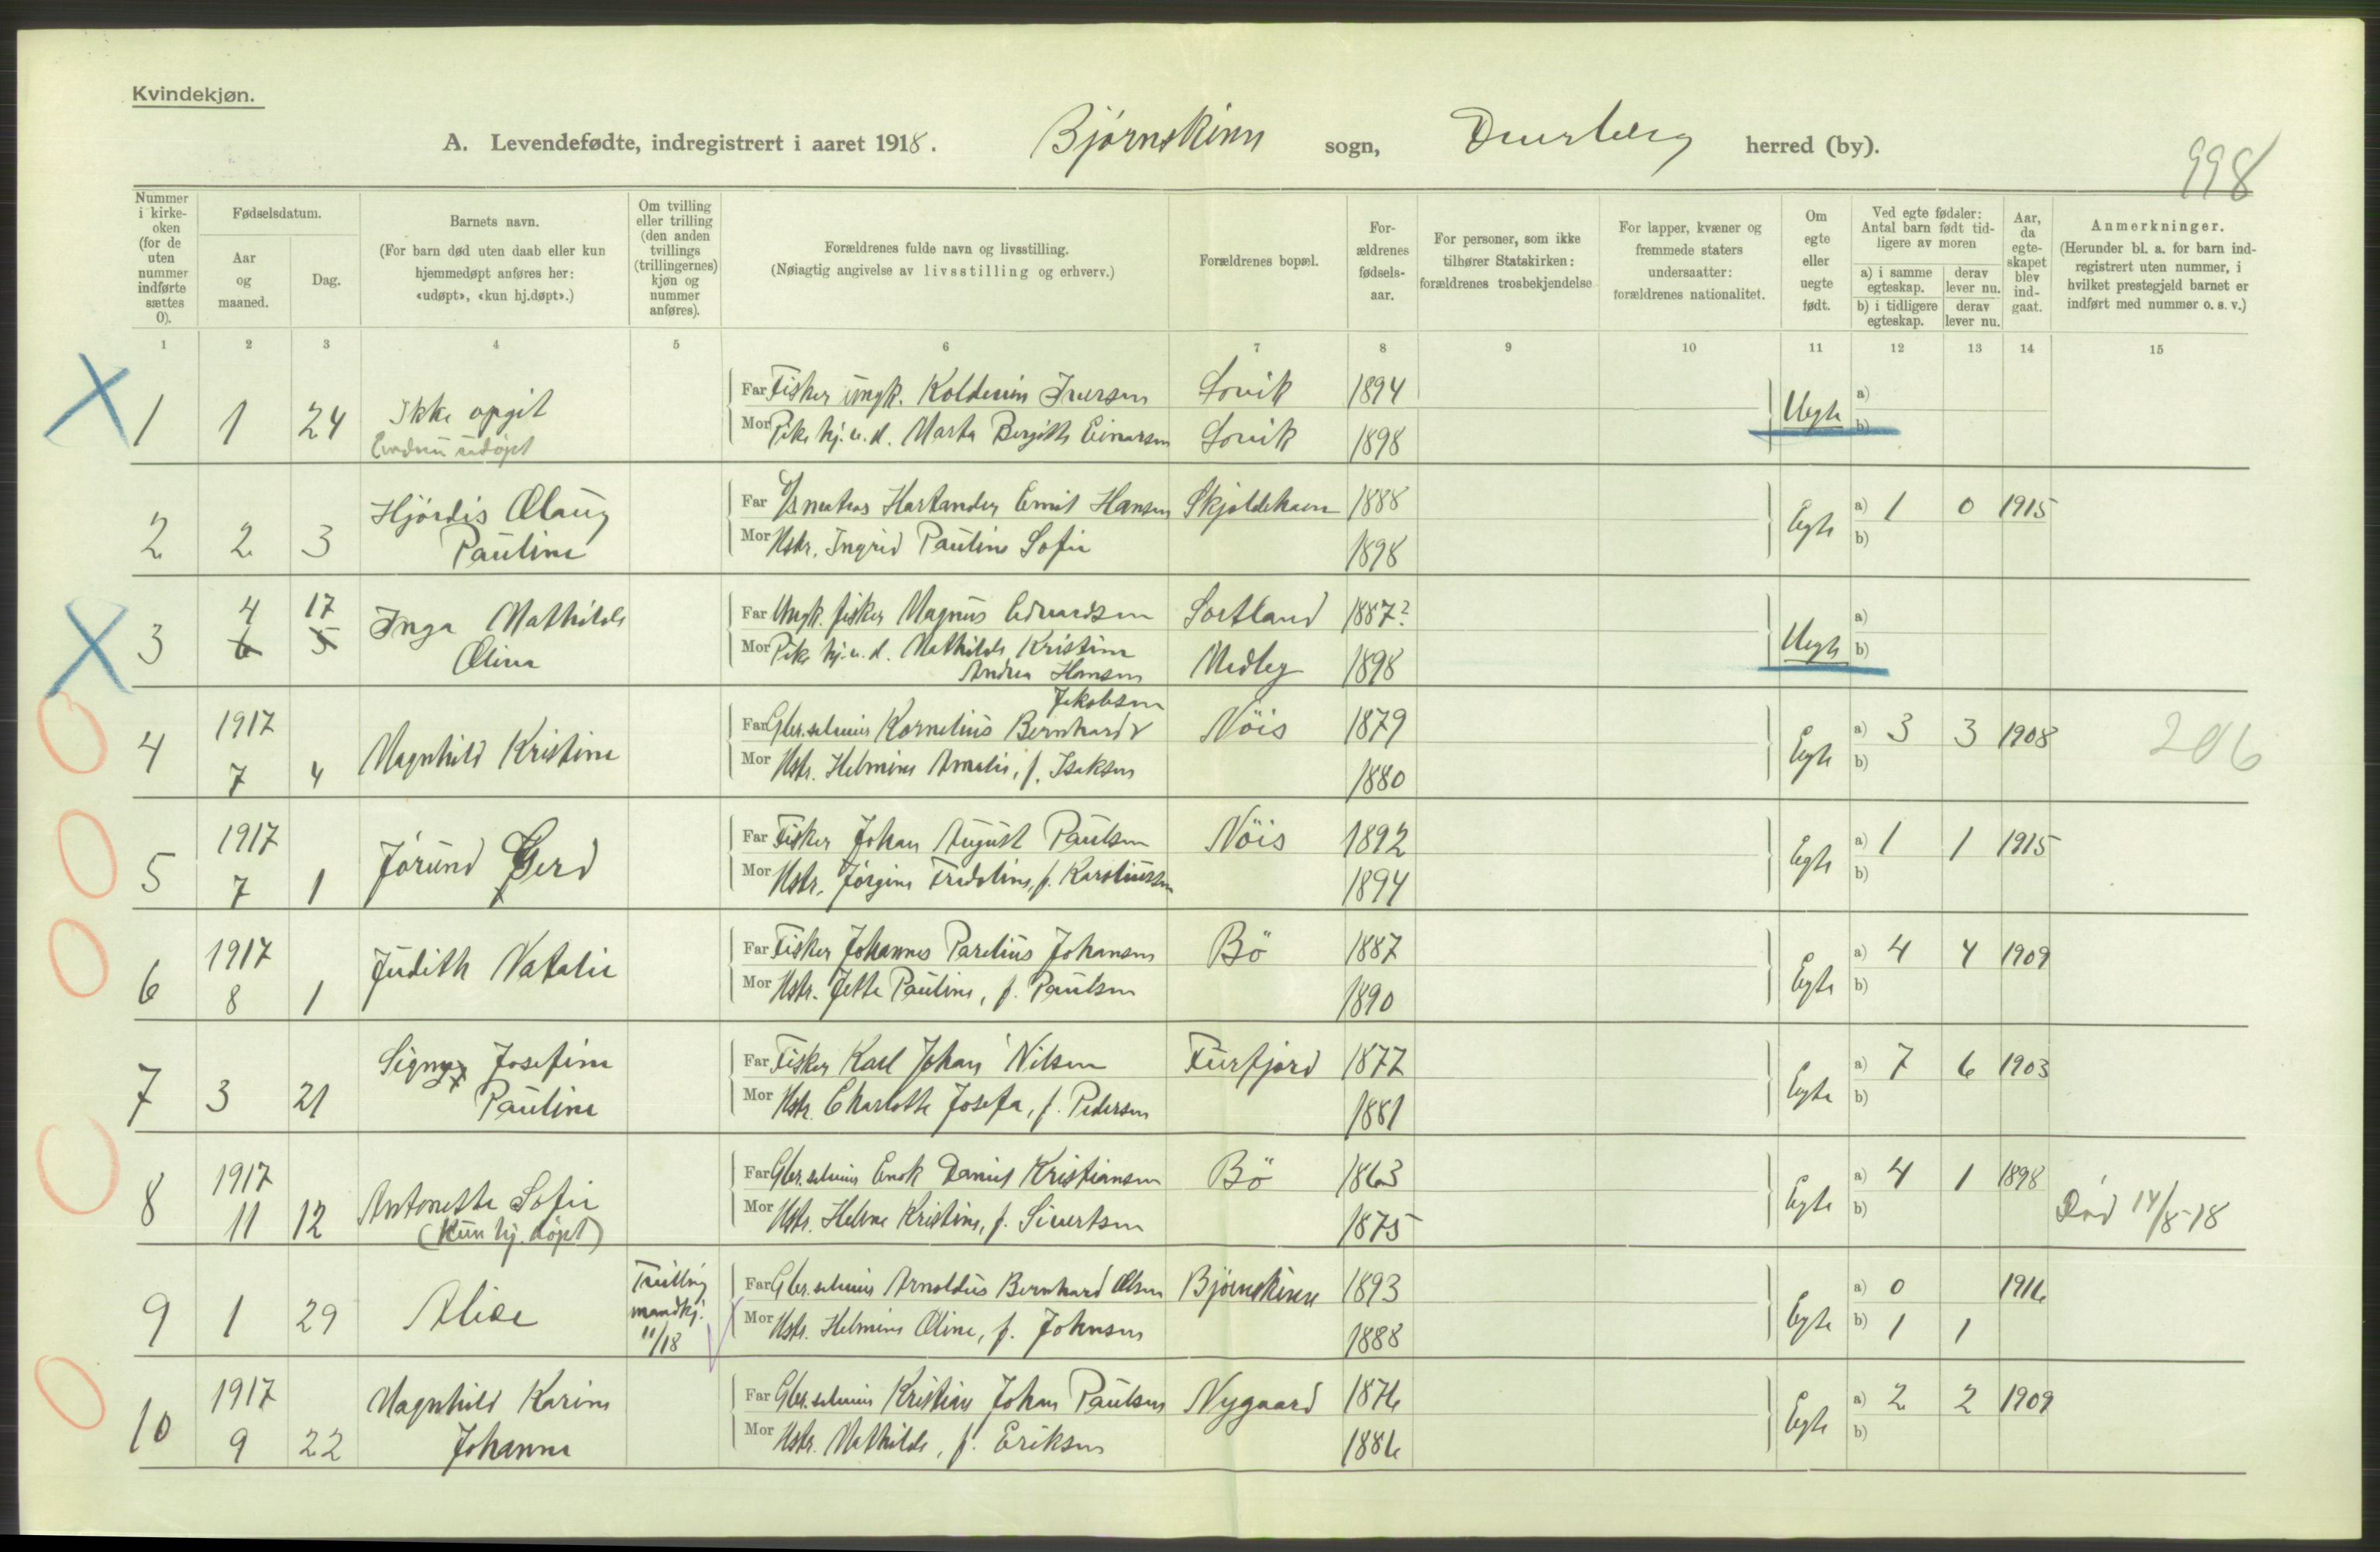 Kvindekjøn.
A. Levendefødte, indregistrert i aaret 1918. Bjørnskinn sogn, Dverberg herred (by).
998
Nummer i kirkeoken (for de uten nummer indførte sættes 0).
Fødselsdatum.
Aar og maaned.
Dag.
Barnets navn.
(For barn død uten daab eller kun hjemmedøpt anføres her: «udøpt», «kun hj.døpt».)
Om tvilling eller trilling (den anden tvillings (trillingernes) kjøn og nummer anføres).
Forældrenes fulde navn og livsstilling.
(Nøiagtig angivelse av livsstilling og erhverv.)
Forældrenes bopæl.
For-ældrenes fødsels-aar.
For personer, som ikke tilhører Statskirken: forældrenes trosbekjendelse
For lapper, kvæner og fremmede staters undersaatter: forældrenes nationalitet.
Om egte eller uegte født.
Ved egte fødsler: Antal barn født tid-ligere av moren
a) i samme egteskap. derav lever nu.
b) i tidligere egteskap. derav lever nu.
Aar, da egte-skapet blev ind-gaat.
Anmerkninger.
(Herunder bl. a. for barn ind-registrert uten nummer, i hvilket prestegjeld barnet er indført med nummer o. s. v.)
1 2 3 4 5 6 7 8 9 10 11 12 13 14 15
1 1 24 Ikke opgit Far Fisker ungk. Iversen 1894 Uegte a)
udøpt Mor Pike hj. u. d. Marta Bergitte Einarsen 1898 b)
2 2 3 Hjördis Olaug Far Hartander Emil Hansen Skjoldehavn 1888 Egte a) 1 0 1915
Pauline Mor Hstr. Ingrid Pauline Sofie 1898 b)
3 4 17 Inga Mathilde Far Ungk. fisker Magnus Edvardsen Sortland 1887? Uegte a)
6 5 Oline Mor Pike hj. u. d. Mathilde Kristine Medby 1898 b)
Andrea Hansen
Jakobsen
4 1917 Magnhild Kristine Far Gbr. selveier Kornelius Bernhard Nöis 1879 Egte a) 3 3 1908 206
7 4 Mor Hstr. Helmine Amalie, f. Isaksen 1880 b)
5 1917 Jörund Gerd Far Fisker Johan August Paulsen Nöis 1892 Egte a) 1 1 1915
7 1 Mor Hstr. Jörgine Fredoline, f. 1894 b)
6 1917 Judith Natalie Far Fisker Johannes Parelius Johansen Bö 1887 Egte a) 4 4 1909
8 1 Mor Hstr. Jette Pauline, f. Paulsen 1890 b)
7 3 21 Signy Josefine Far Fisker Karl Johan Nilsen Furfjord 1877 Egte a) 7 6 1903
Pauline Mor Hstr. Charlotte Josefa, f. Pedersen 1881 b)
8 1917 Antonette Sofie Far Gbr. selveier Enok Daniel Kristiansen Bö 1863 Egte a) 4 1 1898
11 12 (Kun hj. døpt) Mor Hstr. Helene Kristine, f. Sivertsen 1875 b) Död 14/8-18
9 1 29 Alice Tvilling mandkj. 11/18 Far Gbr. selveier Arnoldus Bernhard Olsen Bjørnskinn 1893 Egte a) 0 1916
Mor Hstr. Helmine Oline, f. Johnsen 1888 b) 1 1
10 1917 Magnhild Karine Far Gbr. selveier Kristian Johan Paulsen Nygaard 1876 Egte a) 2 2 1909
9 22 Johanne Mor Hstr. Mathilde, f. Eriksen 1886 b)